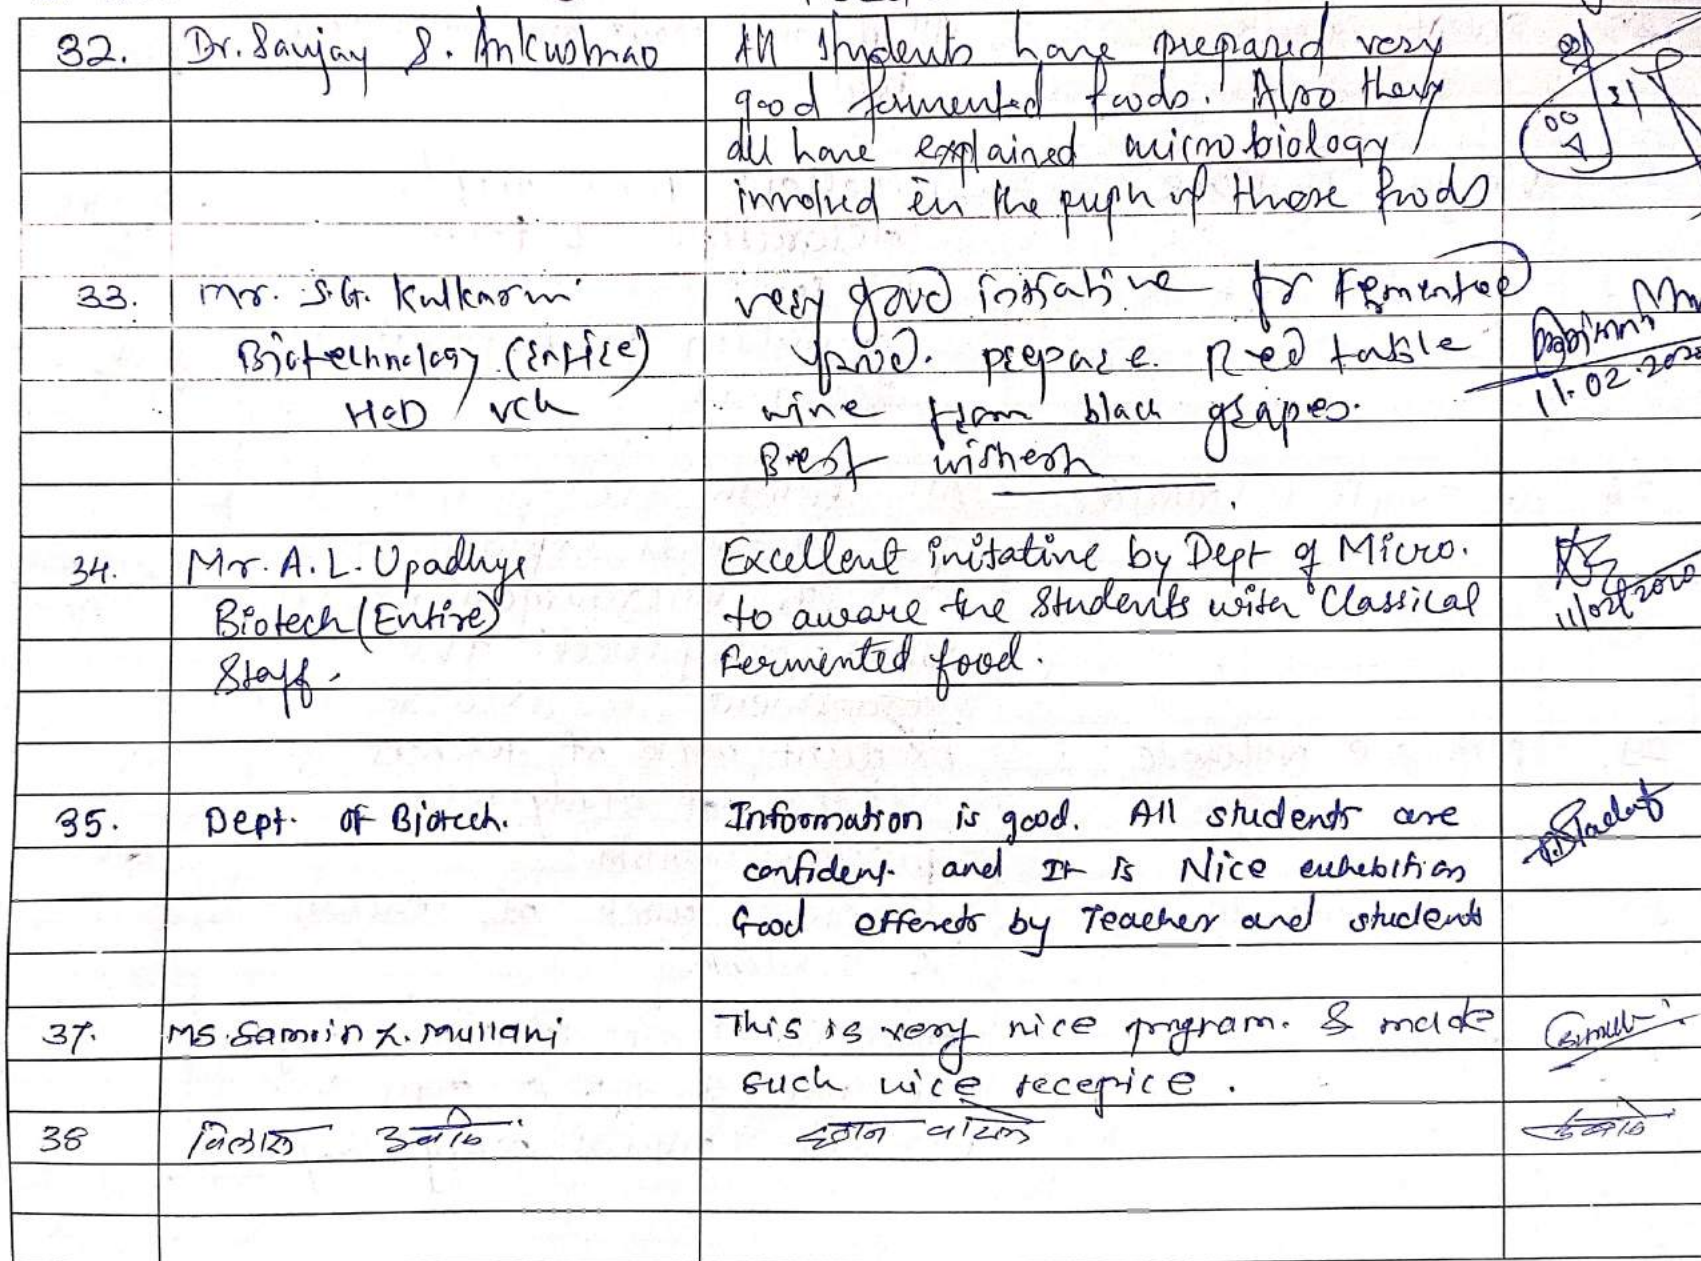 32. Dr. Sanjay S. Ankushrao All students have prepared very
good fermented foods. Also they
all have explained microbiology
involved in the prepn of these foods
33. Mr. S.G. Kulkarni very good initiative for fermented
Biotechnology (Entire) food. prepare Red table
HOD VCK wine from black grapes.
Best wishes
11.02.2020
34. Mr. A. L. Upadhye Excellent initative by Dept of Micro.
Biotech (Entire) to aware the Students with Classical
Staff. Fermented food.
11/02/2020
35. Dept. of Biotech. Information is good. All students are
confident. and It is Nice exhebition
Good efferets by Teacher and students
37. Ms. Samrin Z. Mullani This is very nice program. & made
such nice recepice.
38 विलास